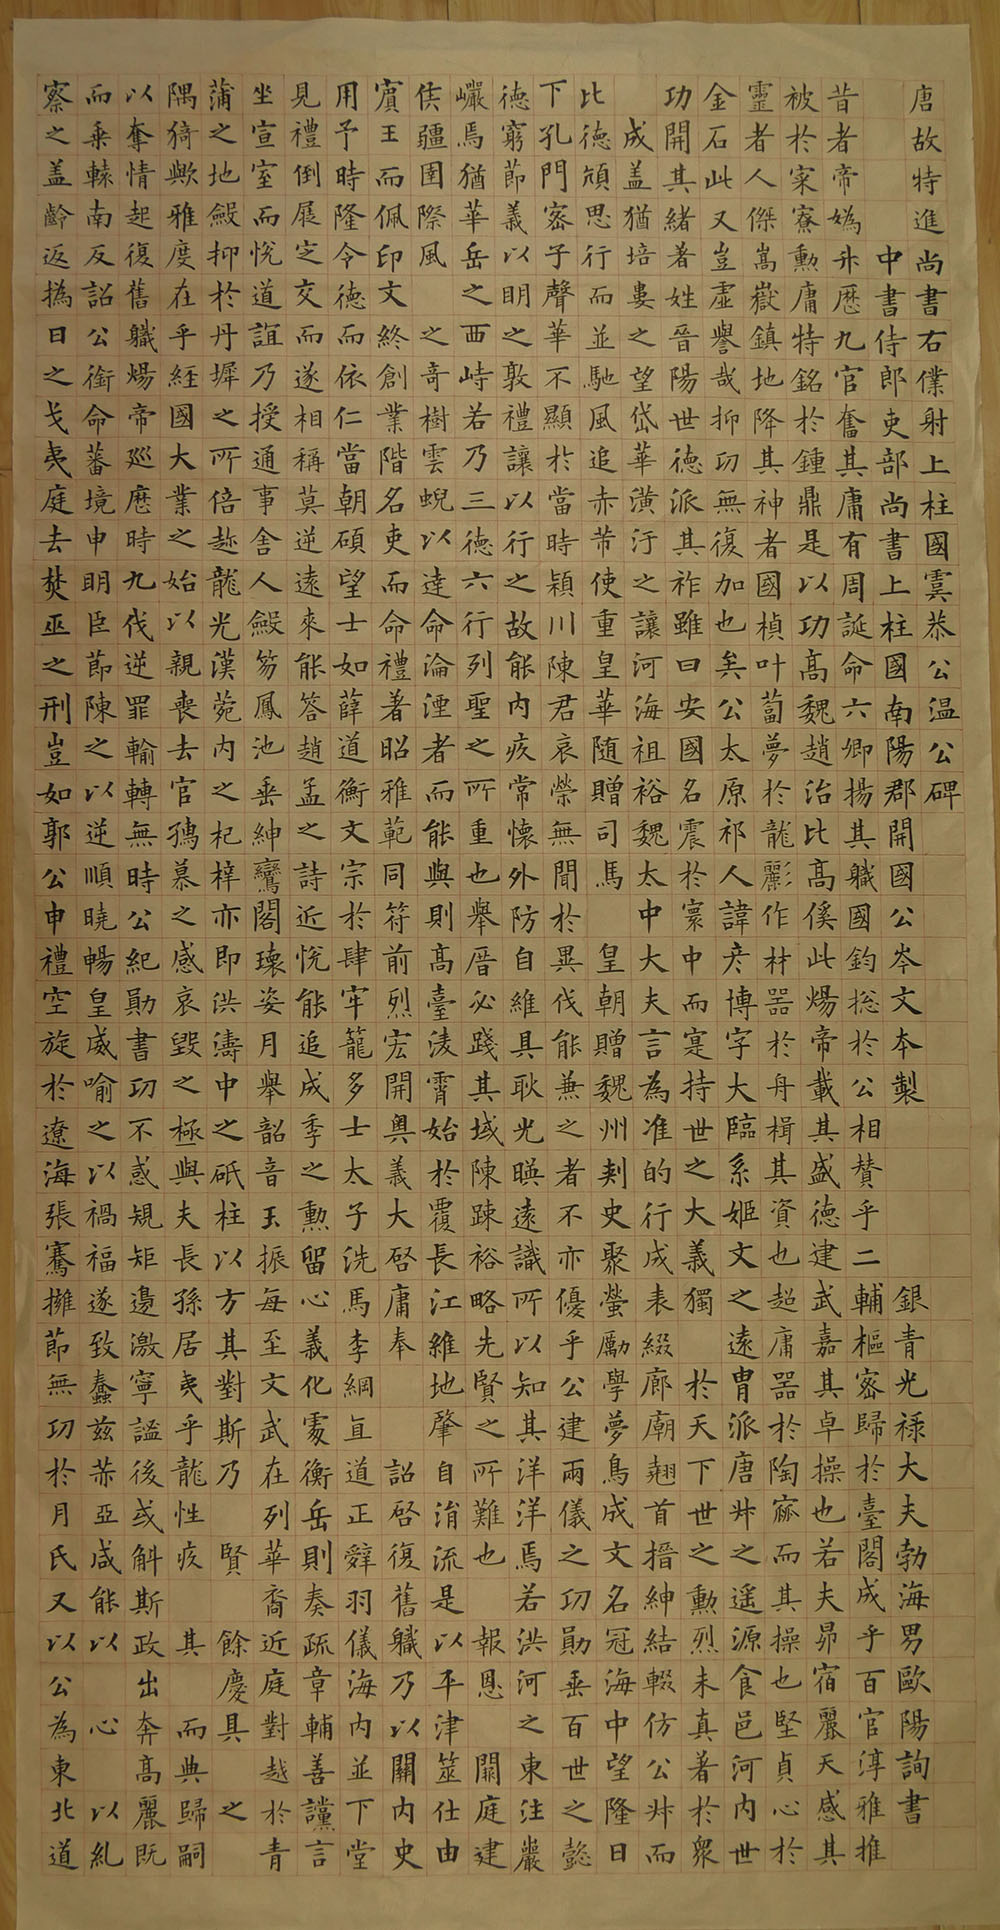 唐故特進尚書右僕射上柱國虞恭公温公碑
中書侍郎吏部尚書上柱國南陽郡開國公岑文本製 銀青光禄大夫勃海男歐陽詢書
昔者帝媯升歷九官奮其庸有周誕命六卿揚其職國鈞総於公相賛乎二輔樞密歸於臺閣成乎百官淳雅推
被於寀寮勲庸特銘於鍾鼎是以功高魏趙治比高傒此煬帝載其盛德建武嘉其卓操也若夫昴宿麗天感其
靈者人傑嵩嶽鎮地降其神者國楨叶蔔夢於龍彲作材噐於舟楫其資也超庸器於陶寐而其操也堅貞心於
金石此又豈虛譽哉抑㓛無復加也矣公太原祁人諱彦博字大臨系姬文之遠胄派唐叔之遥源食邑河内世
功開其緒著姓晉陽世德派其祚雖曰安國名震於寰中而寔持世之大義獨 於天下世之勲烈未真著於衆
成盖猶培婁之望岱華潢汙之讓河海祖裕魏太 中大夫言為准的行成表綴廊廟翹首搢紳結輟仿公叔而
比德頍思行而並馳風追赤芾使重皇華随贈司馬 皇朝贈魏州刾史聚螢勵學夢鳥成文名冠海中望隆日
下孔門密子聲華不顯於當時穎川陳君哀榮無聞於異伐能兼之者不亦優乎公建兩儀之㓛勛垂百世之懿
德窮節義以明之敦禮讓以行之故能内疚常懷外防自維具耿光暎遠識所以知其洋洋焉若洪河之東注巖
巘焉猶華岳之西峙若乃三德六行列聖之所重也舉厝必踐其域陳踈裕略先賢之所難也 報恩 開庭建
侯疆圉際風 之奇樹雲蜺以達命淪湮者而能與則高臺淩霄始於覆長江維地肇自消流是以平津筮仕由
賓王而佩印文終創業階名吏而命禮著昭雅範同符前烈宏開奥義大啓庸奉 詔啓復舊軄乃以闗内史
用予時隆令德而依仁當朝碩望士如薛道衡文宗於肆牢籠多士太子洗馬李綱直道正辭羽儀海内並下堂
見禮倒屣定交而遂相稱莫逆遠來能答趙孟之詩近悅能追成季之勲留心義化䖏衡岳則奏疏章輔善讜言
坐宣室而悅道誼乃授通事舍人毀笏鳳池垂紳鸞閣瓌姿月舉韶音玉振每至文武在列華裔近庭對越於青
蒲之地毀抑於丹墀之所倍趂龍光漢菀内之杞梓亦即洪濤中之砥柱以方其對斯乃 賢 餘慶具 之
隅猗歟雅度在乎經國大業之始以親喪去官慕之感哀毀之極與夫長孫居夷乎龍性疚 其 而典歸嗣
以奪情起復舊職煬帝巡歷時九伐逆罪輸轉無時公紀勛書㓛不忒規矩邉激寧謐後或斛斯政出奔高麗既
而乘轅南反詔公銜命蕃境申明臣節陳之以逆順曉暢皇威喻之以禍福遂致蠢茲亞咸能以 心 以糺
察之盖齡返撝日之戈夷庭去焚巫之刑豈如郭公申禮空旋於遼海張騫擁節無功於月氏又以公為東北道